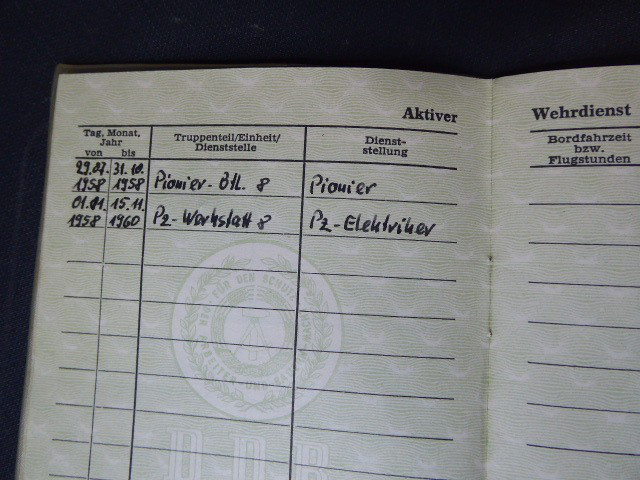 Aktiver
Wehrdienst
Tag, Monat,
Jahr
von bis
Truppenteil/Einheit/
Dienststelle
Dienst-
stellung
Bordfahrzeit
bzw.
Flugstunden
29.07. 31.10.
1958 1958 Pionier-Btl. 8 Pionier
01.01. 15.11.
1958 1960 Pz-Werkstatt 8 Pz-Elektriker
DDR